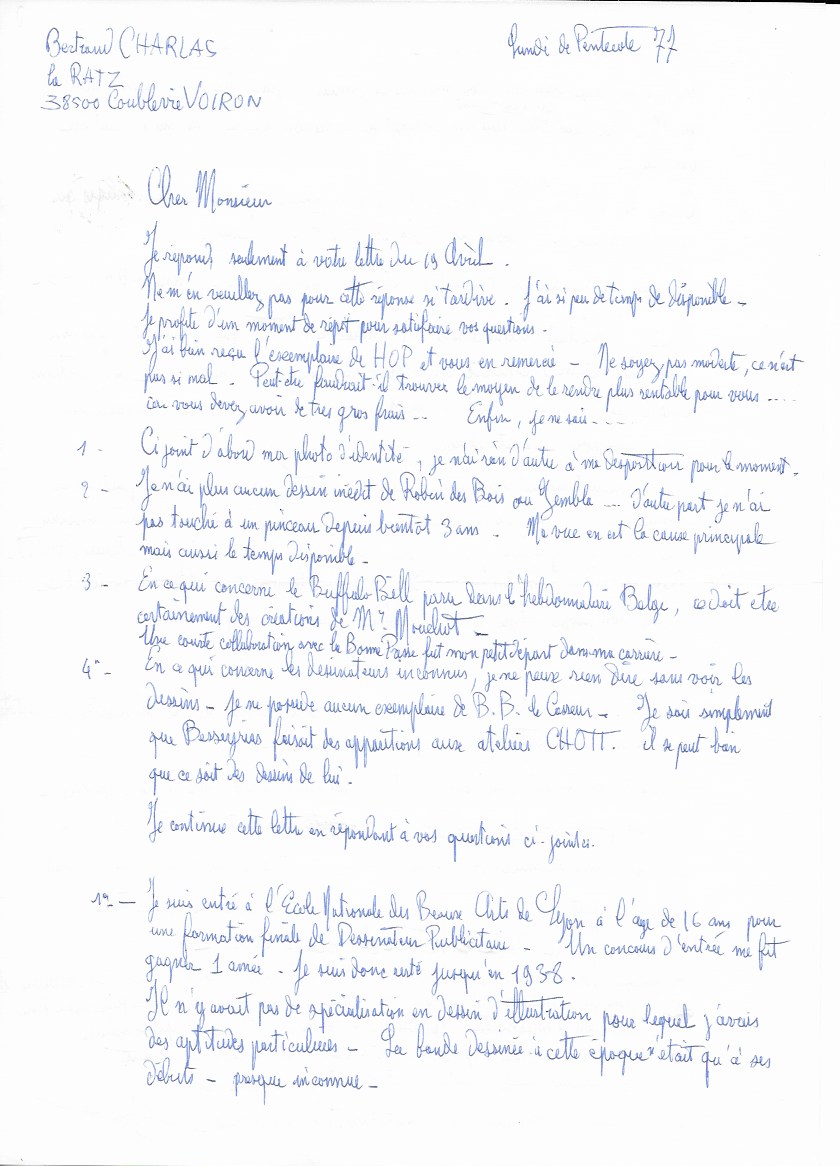 Bertrand CHARLAS
la RATZ
38500 Coublevie VOIRON
Lundi de Pentecote 77
Cher Monsieur
Je répond seulement à votre lettre du 19 Avril.
Ne m'en veuillez pas pour cette réponse si tardive. J'ai si peu de temps de disponible -
Je profite d'un moment de répit pour satisfaire vos questions.
J'ai bien reçu l'exemplaire de HOP et vous en remercie - Ne soyez pas modeste, ce n'est
pas si mal. Peut-etre faudrait-il trouver le moyen de le rendre plus rentable pour vous ....
car vous devez avoir de tres gros frais... Enfin, je ne sais...
1 - Ci joint d'abord ma photo d'identité, je n'ai rien d'autre à ma disposition pour le moment.
2 - Je n'ai plus aucun dessin inédit de Robin des Bois ou Zembla ... D'autre part je n'ai
pas touché à un pinceau depuis bientot 3 ans. Ma vue en est la cause principale
mais aussi le temps disponible.
3 - En ce qui concerne le Buffalo Bill paru dans l'hebdomadaire Belge, ce doit etre
certainement des créations de Mr. Mouchot -
Une courte collaboration avec la Bonne Presse fut mon petit départ dans ma carrière -
4° - En ce qui concerne les dessinateurs inconnus, je ne peux rien dire sans voir les
dessins - Je ne possède aucun exemplaire de B.B. le Casseur - Je sais simplement
que Besseyrias faisait des apparitions aux ateliers CHOTT. il se peut bien
que ce soit des dessins de lui.
Je continue cette lettre en répondant à vos questions ci-jointes.
1° - Je suis entré à l'Ecole Nationale des Beaux Arts de Lyon à l'age de 16 ans pour
une formation finale de Dessinateur Publicitaire - Un concours d'entrée me fit
gagner 1 année - Je suis donc resté jusqu'en 1938.
Il n'y avait pas de spécialisation en dessin d'illustration pour lequel j'avais
des aptitudes particulières - La bande dessinée à cette époque n'était qu'à ses
débuts - presque inconnue -